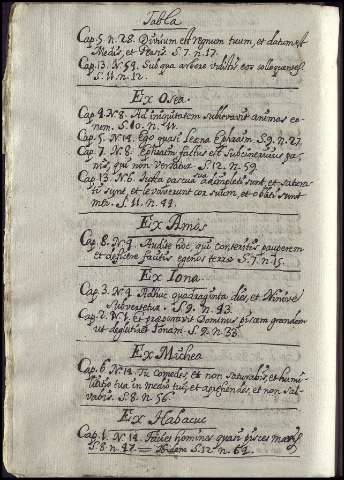 Tabla
Cap. 5. n. 28. Divisum est regnum tuum, et datum est
Medis, et Persis. S. 7. n. 17.
Cap. 13. N. 54. Sub qua arbore vidistis eos colloquentes
S. 11. n. 12.
Ex Osea.
Cap. 4. N. 8. Ad iniquitatem sublevavit animas eo-
rum. S. 10. n. 41.
Cap. 5. N. 14. Ego quasi Leena Ephraim. S. 9. n. 27.
Cap. 7. N. 8. Ephraim factus est subcinericius pa-
nis, qui non versatur. S. 12. n. 59.
Cap. 13. N. 6. Iuxta pascua sua adimpleti sunt, et saturati
sunt, et levaverunt cor suum, et obliti sunt
mei. S. 11. n. 44.
Ex Amós
Cap. 8. N. 4. Audite hoc, qui conteritis pauperem
et deficere facitis egenos terrae S. 7. n. 15.
Ex Iona
Cap. 3. N. 4. Adhuc quadraginta dies, et Ninive
subvertetur. S. 9. n. 33.
Cap. 2. N. 1. Et praeparavit Dominus piscem grandem
ut deglutiret Ionam. S. 9. n. 46.
Ex Michea
Cap. 6. N. 14. Tu comedes, et non saturaberis, et humi-
liatio tua in medio tui, et aprehendes, et non sal-
vabis. S. 8. n. 56.
Ex Habacuc
Cap. 1. N. 14. Facies homines quasi pisces maris
S. 8. n. 47. = Ibidem S. 12. n. 64.